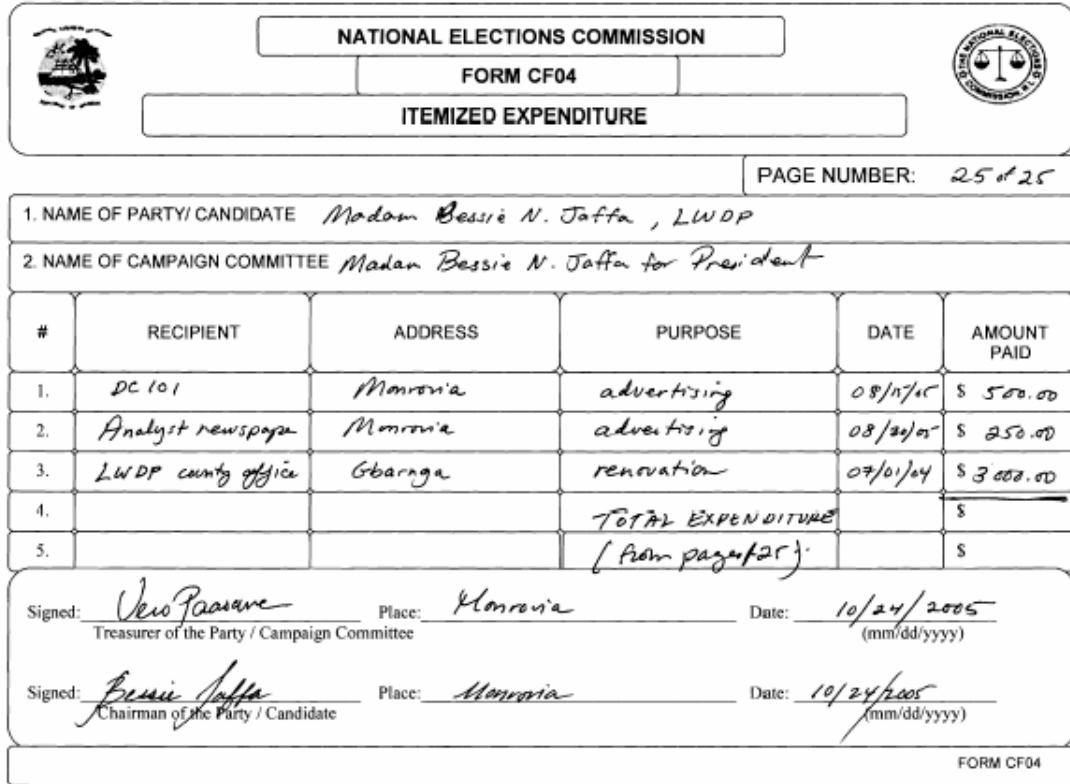 NATIONAL ELECTIONS COMMISSION
FORM CF04
ITEMIZED EXPENDITURE
PAGE NUMBER: 25 of 25
1. NAME OF PARTY/ CANDIDATE Madam Bessie N. Jaffa, LWDP
2. NAME OF CAMPAIGN COMMITTEE Madam Bessie N. Jaffa for President
# RECIPIENT ADDRESS PURPOSE DATE AMOUNT PAID
1. DC 101 Monrovia advertising 08/15/05 $ 500.00
2. Analyst newspape Monrovia advertising 08/20/05 $ 250.00
3. LWDP county office Gbarnga renovation 07/01/04 $ 3000.00
4. TOTAL EXPENDITURE $
5. (from pages 1-25). $
Signed: Place: Monrovia Date: 10/24/2005
Treasurer of the Party / Campaign Committee (mm/dd/yyyy)
Signed: Bessie Jaffa Place: Monrovia Date: 10/24/2005
Chairman of the Party / Candidate (mm/dd/yyyy)
FORM CF04